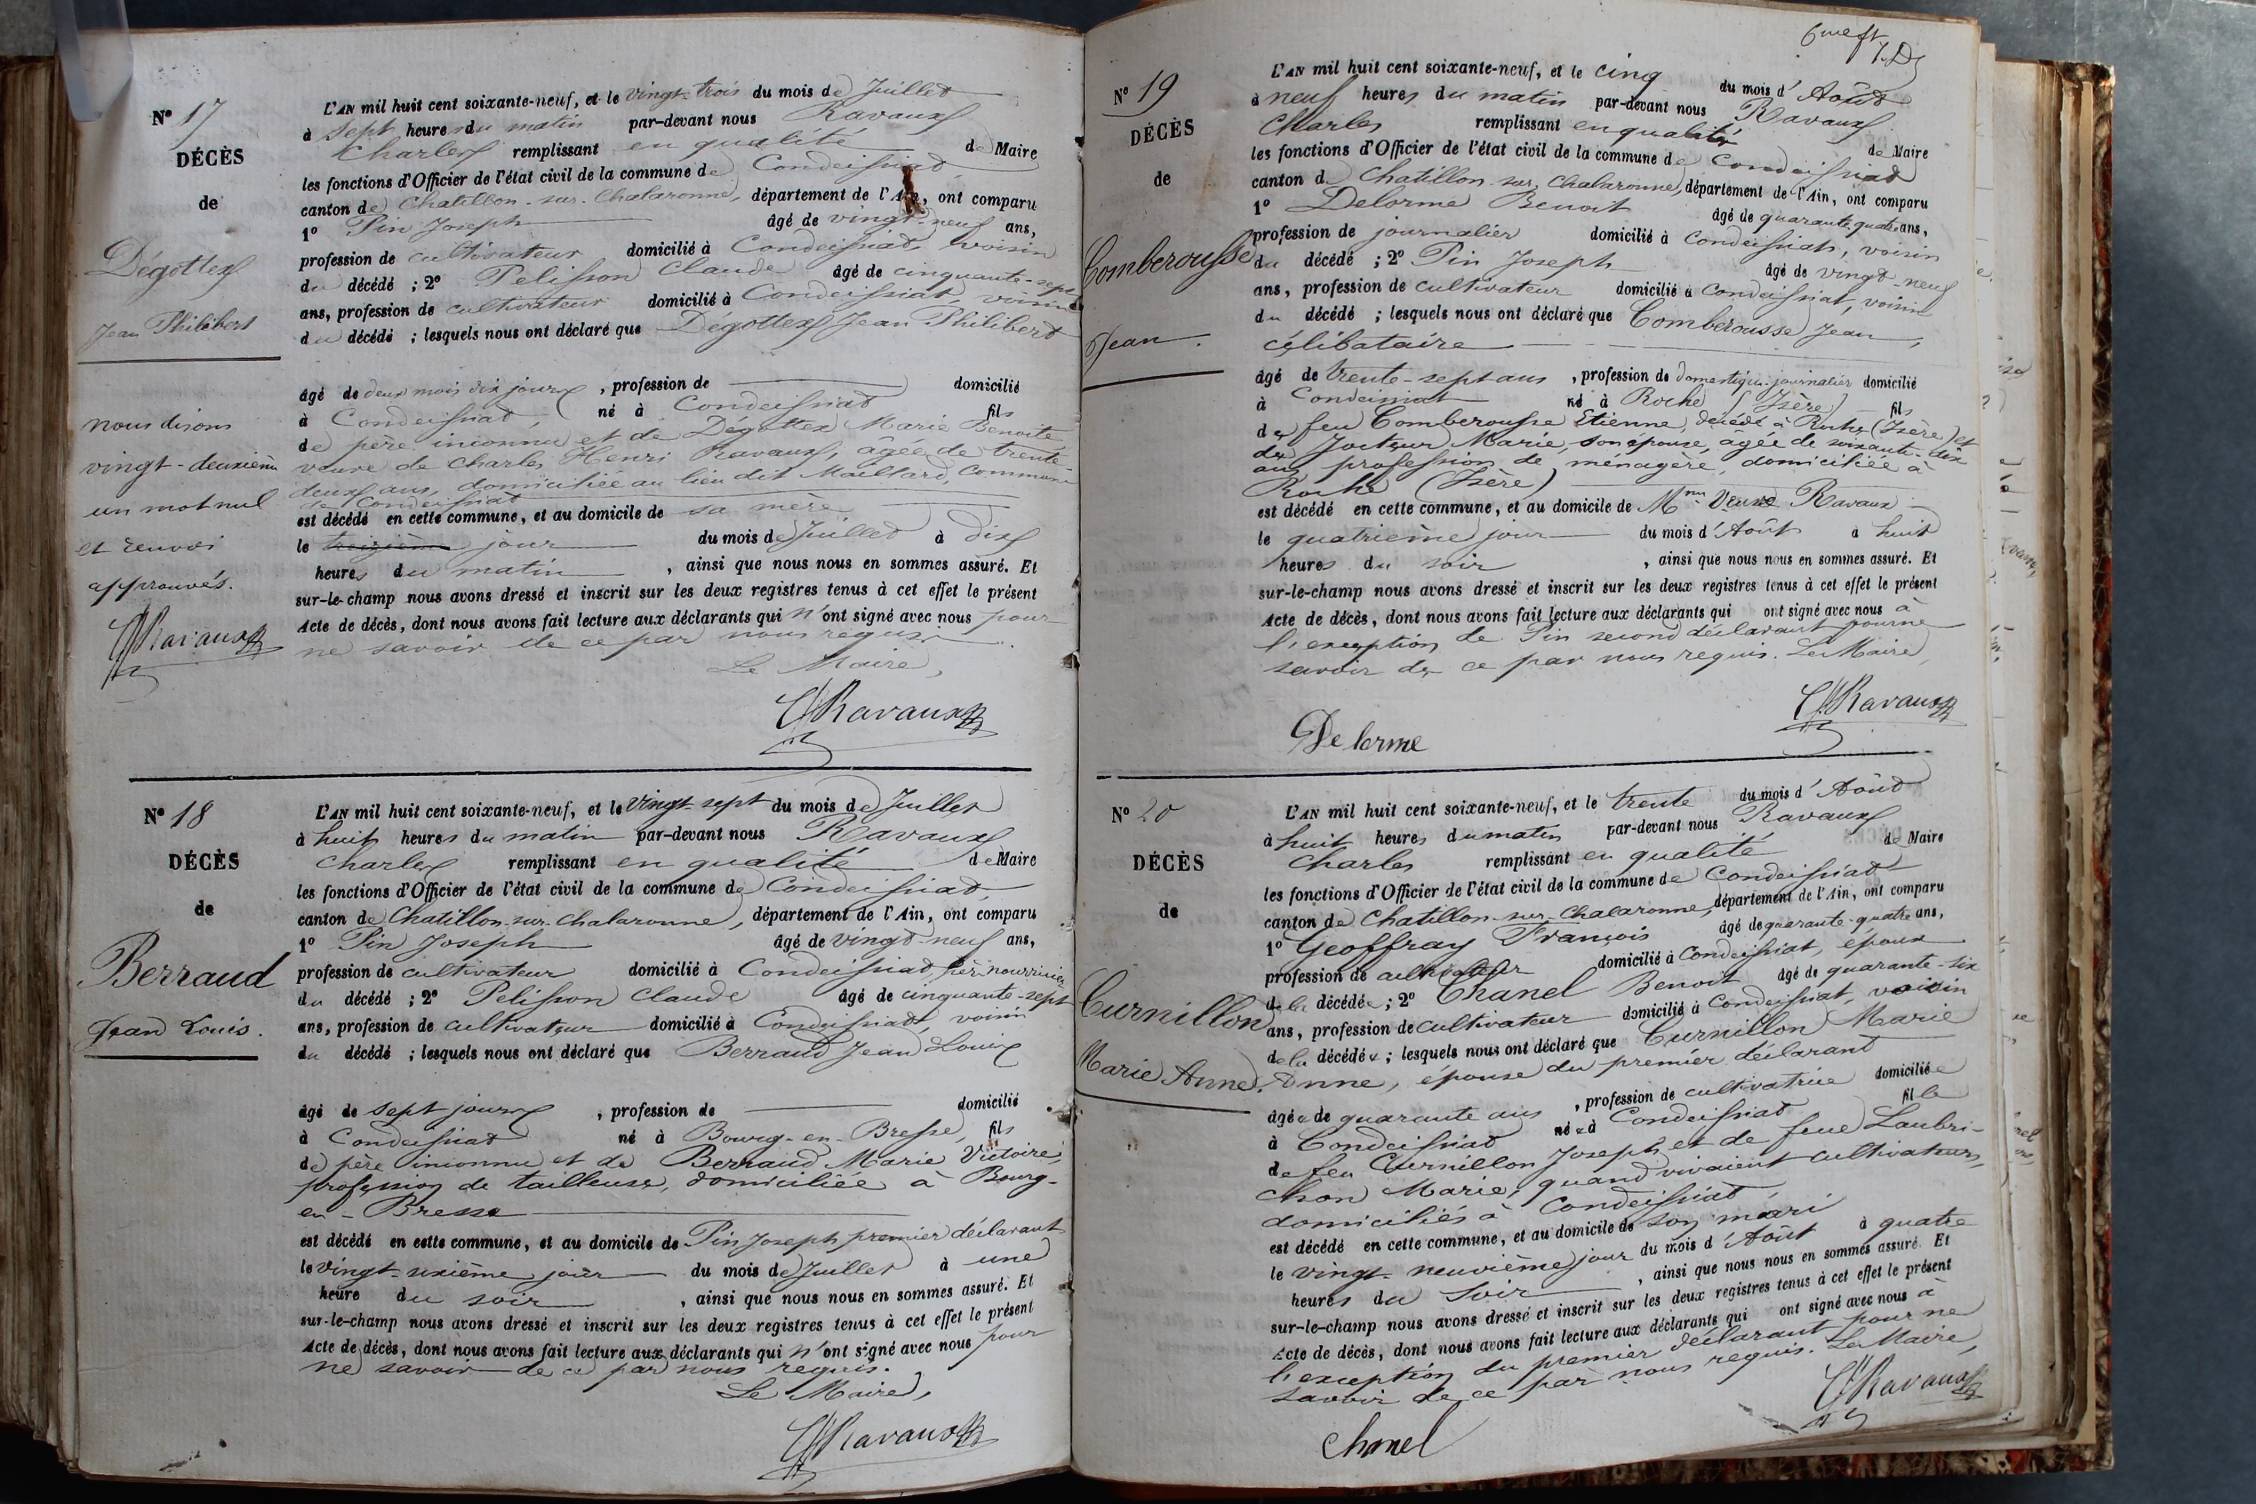 Nº 17
DÉCÈS
de
Dégottex
Jean Philibert
nous disons
vingt-deuxième
un mot nul
et renvoi
approuvés.
Ravaux
L'AN mil huit cent soixante-neuf, et le vingt-trois du mois de Juillet
à sept heures du matin par-devant nous Ravaux
Charles remplissant en qualité de Maire
les fonctions d'Officier de l'état civil de la commune de Condeissiat
canton de Chatillon-sur-Chalaronne, département de l'Ain, ont comparu
1º Pin Joseph âgé de vingt-neuf ans,
profession de cultivateur domicilié à Condeissiat, voisin
du décédé ; 2º Pelisson Claude âgé de cinquante-sept
ans, profession de cultivateur domicilié à Condeissiat, voisin
du décédé ; lesquels nous ont déclaré que Dégottex Jean Philibert
âgé de deux mois dix jours, profession de domicilié
à Condeissiat, né à Condeissiat fils
de père inconnu et de Dégottex Marie Benoite
veuve de Charles Henri Ravaux, âgée de trente-
deux ans, domiciliée au lieu dit Maillard, commune
de Condeissiat
est décédé en cette commune, et au domicile de sa mère
le treizième jour du mois de Juillet à dix
heures du matin, ainsi que nous nous en sommes assuré. Et
sur-le-champ nous avons dressé et inscrit sur les deux registres tenus à cet effet le présent
Acte de décès, dont nous avons fait lecture aux déclarants qui n'ont signé avec nous pour
ne savoir de ce par nous requis.
Le Maire,
Ravaux
Nº 18
DÉCÈS
de
Berraud
Jean Louis.
L'AN mil huit cent soixante-neuf, et le vingt-sept du mois de Juillet
à huit heures du matin par-devant nous Ravaux
Charles remplissant en qualité de Maire
les fonctions d'Officier de l'état civil de la commune de Condeissiat,
canton de Chatillon-sur-Chalaronne, département de l'Ain, ont comparu
1º Pin Joseph âgé de vingt-neuf ans,
profession de cultivateur domicilié à Condeissiat, père nourricier
du décédé ; 2º Pelisson Claude âgé de cinquante-sept
ans, profession de cultivateur domicilié à Condeissiat, voisin
du décédé ; lesquels nous ont déclaré que Berraud Jean Louis
âgé de sept jours, profession de domicilié
à Condeissiat né à Bourg-en-Bresse, fils
de père inconnu et de Berraud Marie Victoire,
profession de tailleuse, domiciliée à Bourg-
en-Bresse
est décédé en cette commune, et au domicile de Pin Joseph premier déclarant
le vingt-sixième jour du mois de Juillet à une
heure du soir, ainsi que nous nous en sommes assuré. Et
sur-le-champ nous avons dressé et inscrit sur les deux registres tenus à cet effet le présent
Acte de décès, dont nous avons fait lecture aux déclarants qui n'ont signé avec nous pour
ne savoir de ce par nous requis.
Le Maire,
Ravaux
Nº 19
DÉCÈS
de
Comberousse
Jean.
L'AN mil huit cent soixante-neuf, et le cinq du mois d'Août
à neuf heures du matin par-devant nous Ravaux
Charles remplissant en qualité de Maire
les fonctions d'Officier de l'état civil de la commune de Condeissiat
canton de Chatillon-sur-Chalaronne, département de l'Ain, ont comparu
1º Delorme Benoit âgé de quarante-quatre ans,
profession de journalier domicilié à Condeissiat, voisin
du décédé ; 2º Pin Joseph âgé de vingt-neuf
ans, profession de cultivateur domicilié à Condeissiat, voisin
du décédé ; lesquels nous ont déclaré que Comberousse Jean,
célibataire
âgé de trente-sept ans, profession de domestique journalier domicilié
à Condeissiat né à Roche (Isère) fils
de feu Comberousse Etienne, décédé à Roche (Isère) et
de Marie, son épouse, âgée de soixante-dix
ans, profession de ménagère, domiciliée à
Roche (Isère)
est décédé en cette commune, et au domicile de Mme Veuve Ravaux
le quatrième jour du mois d'Août à huit
heures du soir, ainsi que nous nous en sommes assuré. Et
sur-le-champ nous avons dressé et inscrit sur les deux registres tenus à cet effet le présent
Acte de décès, dont nous avons fait lecture aux déclarants qui ont signé avec nous à
l'exception de Pin second déclarant pour ne
savoir de ce par nous requis. Le Maire,
Ravaux
Delorme
Nº 20
DÉCÈS
de
Curnillon
Marie Anne.
L'AN mil huit cent soixante-neuf, et le trente du mois d'Août
à huit heures du matin par-devant nous Ravaux
Charles remplissant en qualité de Maire
les fonctions d'Officier de l'état civil de la commune de Condeissiat
canton de Chatillon-sur-Chalaronne, département de l'Ain, ont comparu
1º Geoffray François âgé de quarante-quatre ans,
profession de cultivateur domicilié à Condeissiat, époux
de la décédée ; 2º Chanel Benoit âgé de quarante-six
ans, profession de cultivateur domicilié à Condeissiat, voisin
de la décédée ; lesquels nous ont déclaré que Curnillon Marie
Anne, épouse du premier déclarant
âgée de quarante ans, profession de cultivatrice domiciliée
à Condeissiat née à Condeissiat fille
de feu Curnillon Joseph et de feue Laubri-
chon Marie, quand vivaient cultivateurs,
domiciliés à Condeissiat
est décédé en cette commune, et au domicile de son mari
le vingt-neuvième jour du mois d'Août à quatre
heures du soir, ainsi que nous nous en sommes assuré. Et
sur-le-champ nous avons dressé et inscrit sur les deux registres tenus à cet effet le présent
Acte de décès, dont nous avons fait lecture aux déclarants qui ont signé avec nous à
l'exception du premier déclarant pour ne
savoir de ce par nous requis. Le Maire,
Ravaux
Chanel